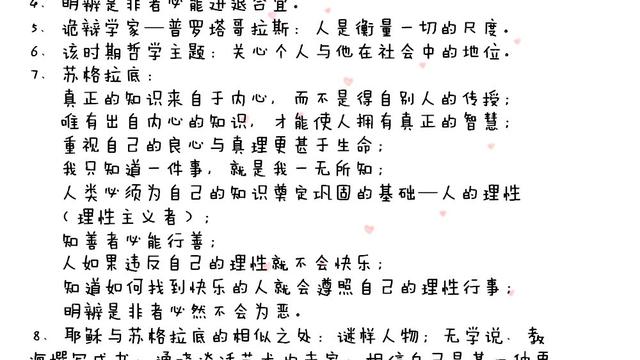 4. 明辨是非者必能进退合宜。
5. 诡辩学家—普罗塔哥拉斯：人是衡量一切的尺度。
6. 该时期哲学主题：关心个人与他在社会中的地位。
7. 苏格拉底：
真正的知识来自于内心，而不是得自别人的传授；
唯有出自内心的知识，才能使人拥有真正的智慧；
重视自己的良心与真理更甚于生命；
我只知道一件事，就是我一无所知；
人类必须为自己的知识奠定巩固的基础—人的理性
（理性主义者）；
知善者必能行善；
人如果违反自己的理性就不会快乐；
知道如何找到快乐的人就会遵照自己的理性行事；
明辨是非者必然不会为恶。
8. 耶稣与苏格拉底的相似之处：谜样人物；无学说、教